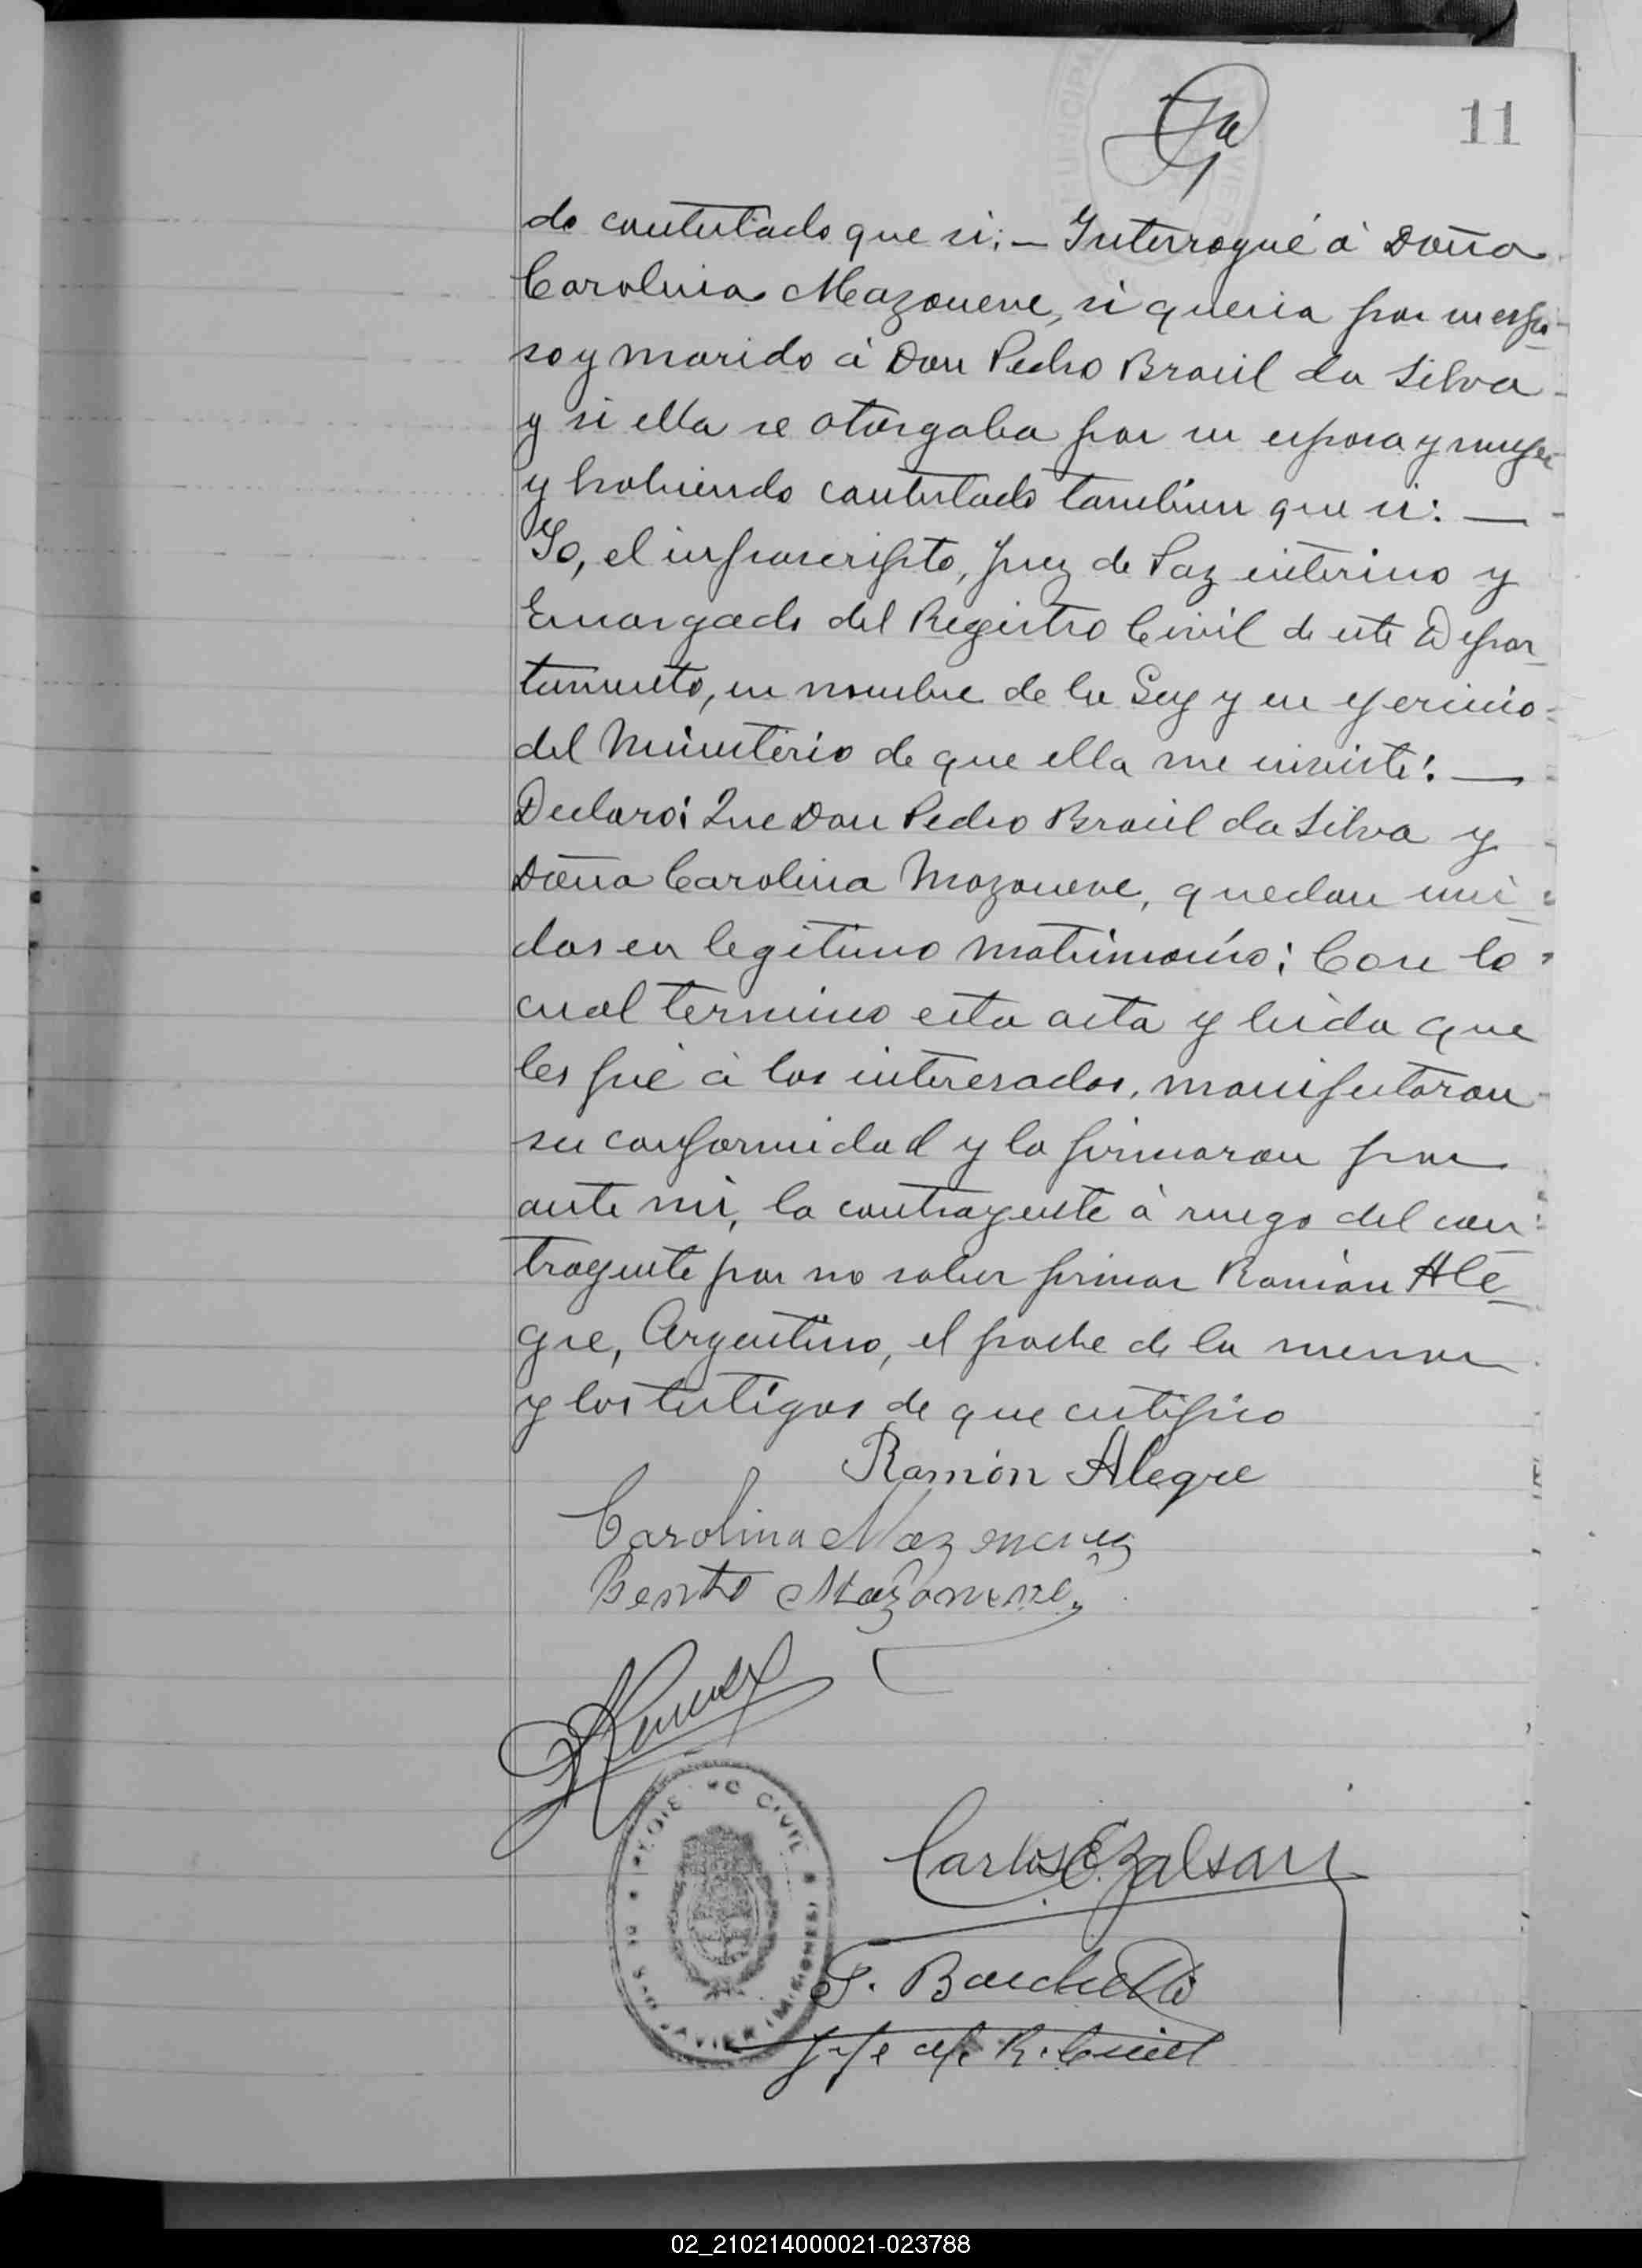 11
do contestado que si; — Interrogué á Doña
Carolina Mazonene, si queria por su espo-
so y marido á Don Pedro Brasil da Silva
y si ella se otorgaba por su esposa y muger
y habiendo contestado tambien que si: —
Yo, el infrascripto, Juez de Paz interino y
Encargado del Registro Civil de este Depar-
tamento, en nombre de la Ley y en ejercicio
del Ministerio de que ella me inviste: —
Declaro: Que Don Pedro Brasil da Silva y
Doña Carolina Mazonene, quedan uni-
dos en legítimo matrimonio: Con lo
cual termino esta acta y leida que
les fué á los interesados, manifestaron
su conformidad y la firmaron por
ante mi, la contrayente á ruego del con-
trayente por no saber firmar Ramón Ale-
gre, Argentino, el padre de la menor
y los testigos de que certifico
Ramón Alegre
Carolina
Bento Mazonene
Carlos E. Zalsar
J. Bacchetti
Jefe del R. Civil
REGISTRO CIVIL
DE SAN JAVIER (MISIONES)
02_210214000021-023788